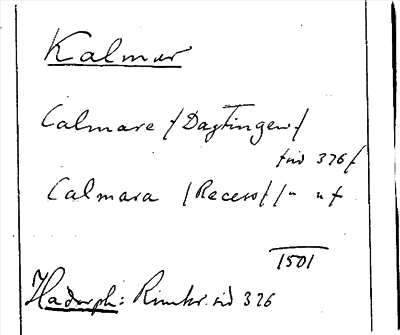 Kalmar
Calmare /Dagtingen/
sid 376/
Calmara /Recess/ /" "/
1501
Hadorph: Rimkr. sid 376